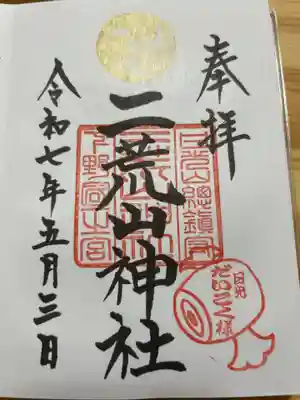 奉拝
二荒山神社
令和七年五月三日
日光
だいこく様